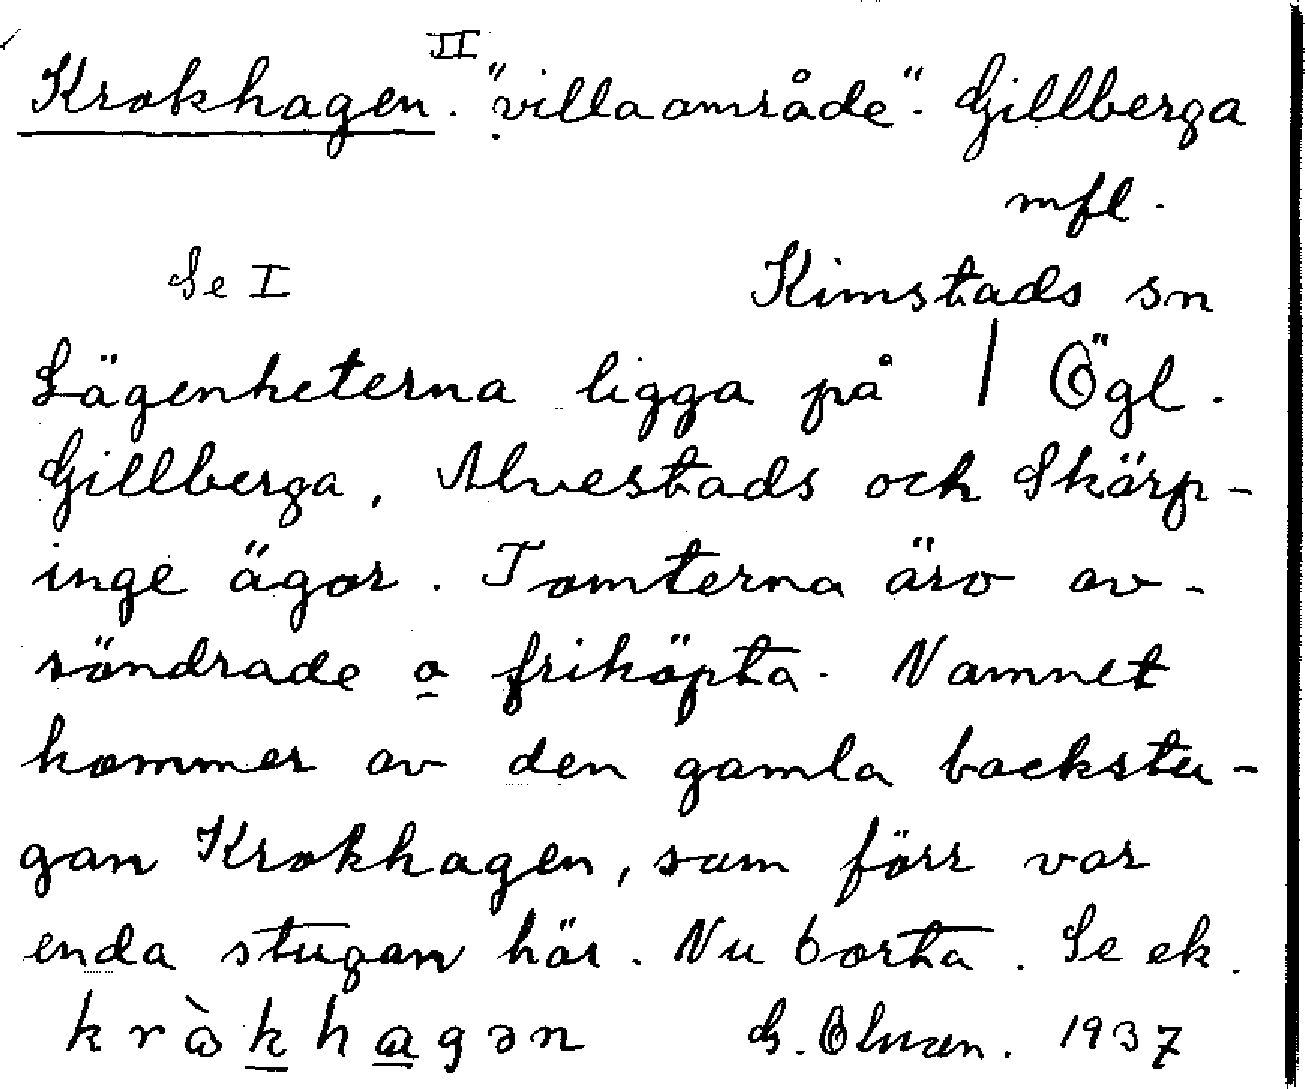 Krokhagen. II "villaområde". Gillberga
mfl.
Se I Kimstads sn
Lägenheterna ligga på | Ögl.
Gillberga, Alvestads och Skärp-
inge ägor. Tomterna äro av-
söndrade o friköpta. Namnet
kommer av den gamla backstu-
gan Krokhagen, som förr var
enda stugan här. Nu borta. Se ek.
kròkhagən G. Olnæn. 1937